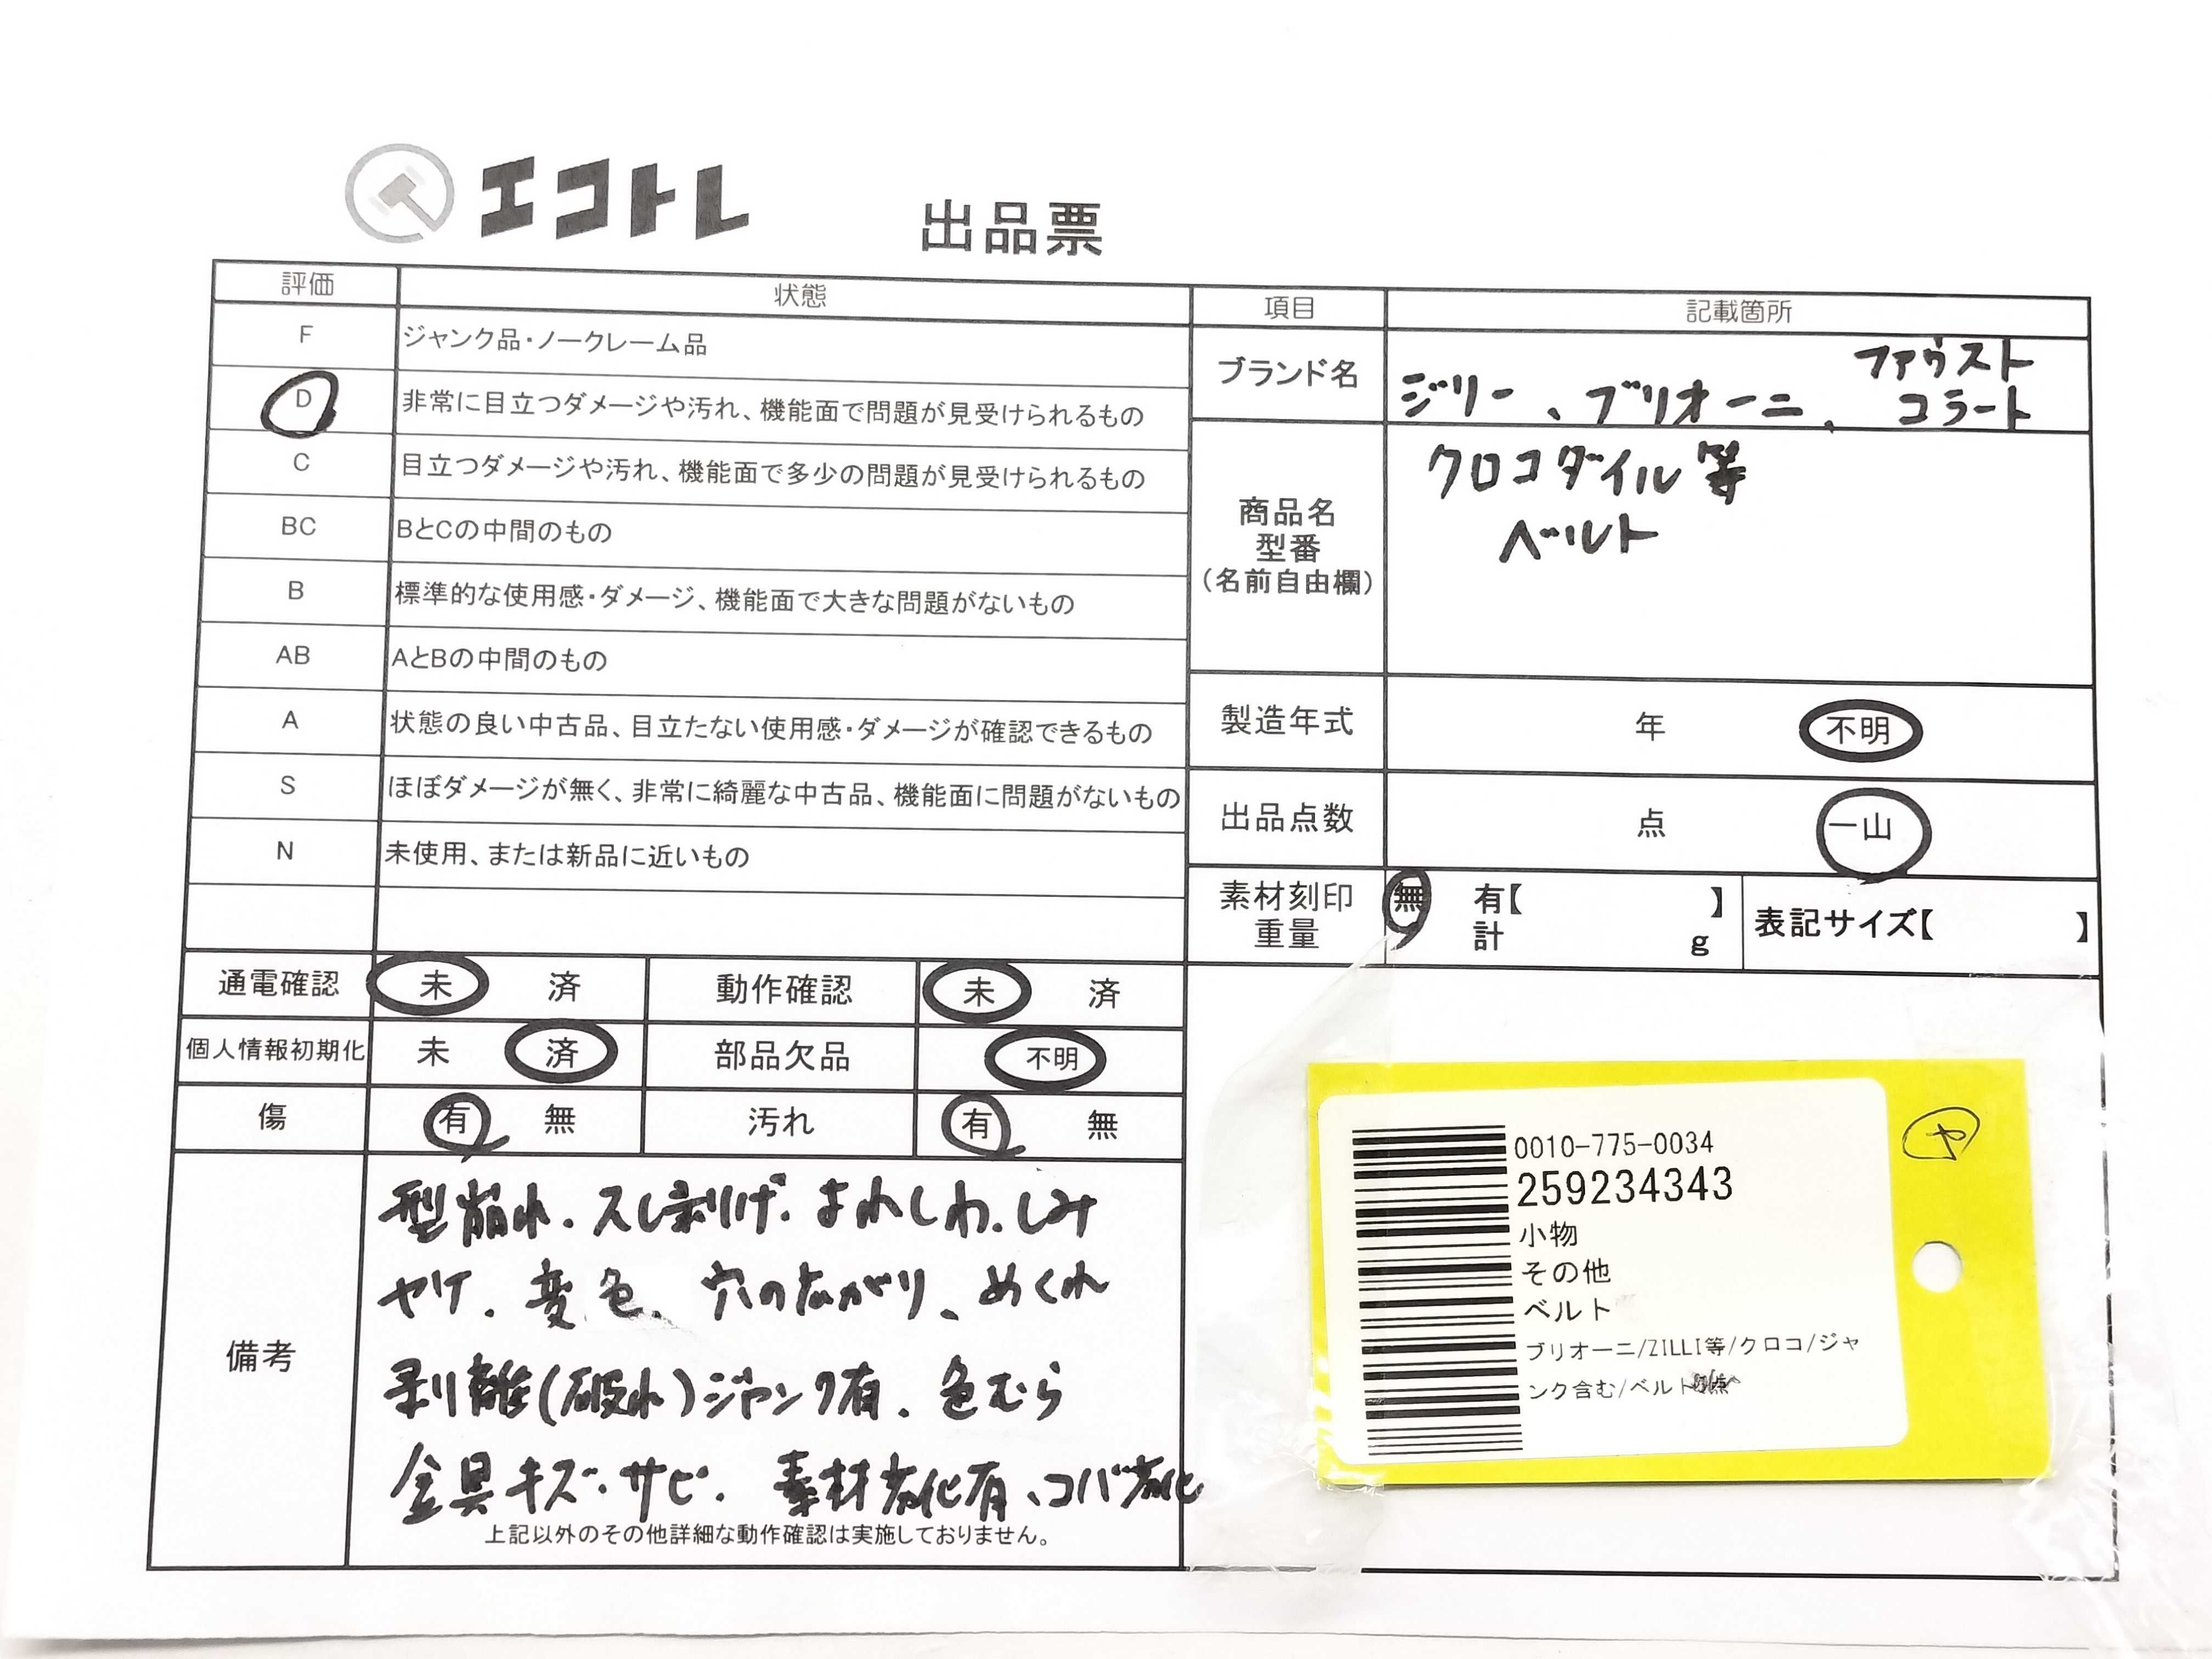 エコトレ 出品票
評価 状態
F ジャンク品・ノークレーム品
D 非常に目立つダメージや汚れ、機能面で問題が見受けられるもの
C 目立つダメージや汚れ、機能面で多少の問題が見受けられるもの
BC BとCの中間のもの
B 標準的な使用感・ダメージ、機能面で大きな問題がないもの
AB AとBの中間のもの
A 状態の良い中古品、目立たない使用感・ダメージが確認できるもの
S ほぼダメージが無く、非常に綺麗な中古品、機能面に問題がないもの
N 未使用、または新品に近いもの
項目 記載箇所
ブランド名 ジリー、ブリオーニ、ファウスト
コラート
商品名
型番
(名前自由欄)
クロコダイル等
ベルト
製造年式 年 不明
出品点数 点 一山
素材刻印 無 有【 】
重量 計 g
表記サイズ【 】
通電確認 未 済 動作確認 未 済
個人情報初期化 未 済 部品欠品 不明
傷 有 無 汚れ 有 無
備考
型崩れ.スレ剥げ.よれしわ.しみ
ヤケ.変色.穴の広がり、めくれ
剥離(破れ)ジャンク有.色むら
金具キズ・サビ.素材劣化有、コバ劣化
上記以外のその他詳細な動作確認は実施しておりません。
0010-775-0034
259234343
小物
その他
ベルト
ブリオーニ/ZILLI等/クロコ/ジャ
ンク含む/ベルト
や